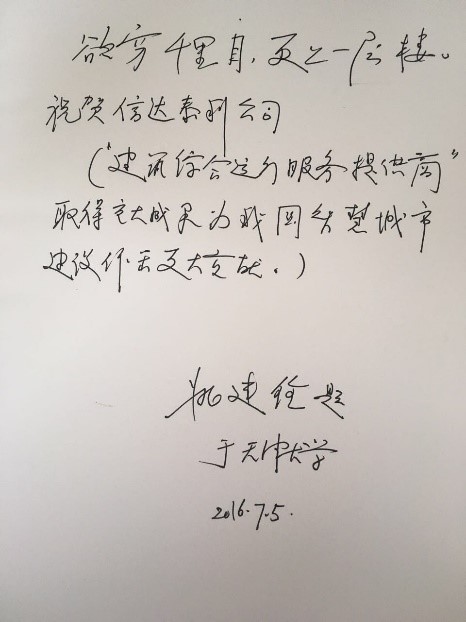 欲穷千里目,更上一层楼。
祝贺信达泰利公司
(“建筑综合运行服务提供商”
取得更大成果为我国智慧城市
建设作出更大贡献。)
姚建铨题
于天津大学
2016.7.5.